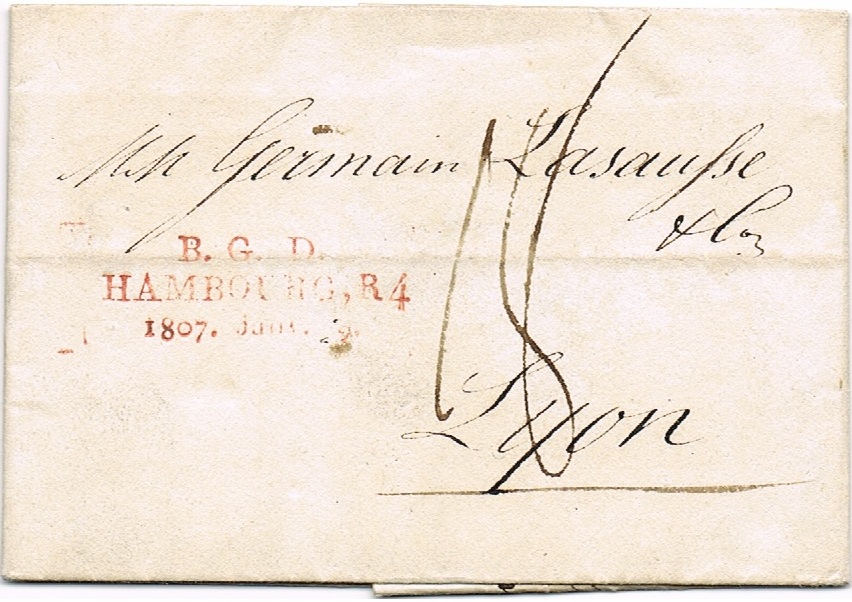 Germain Lasausse
& Co
B. G. D.
HAMBOURG, R4
1807. Janv.
18
Lyon